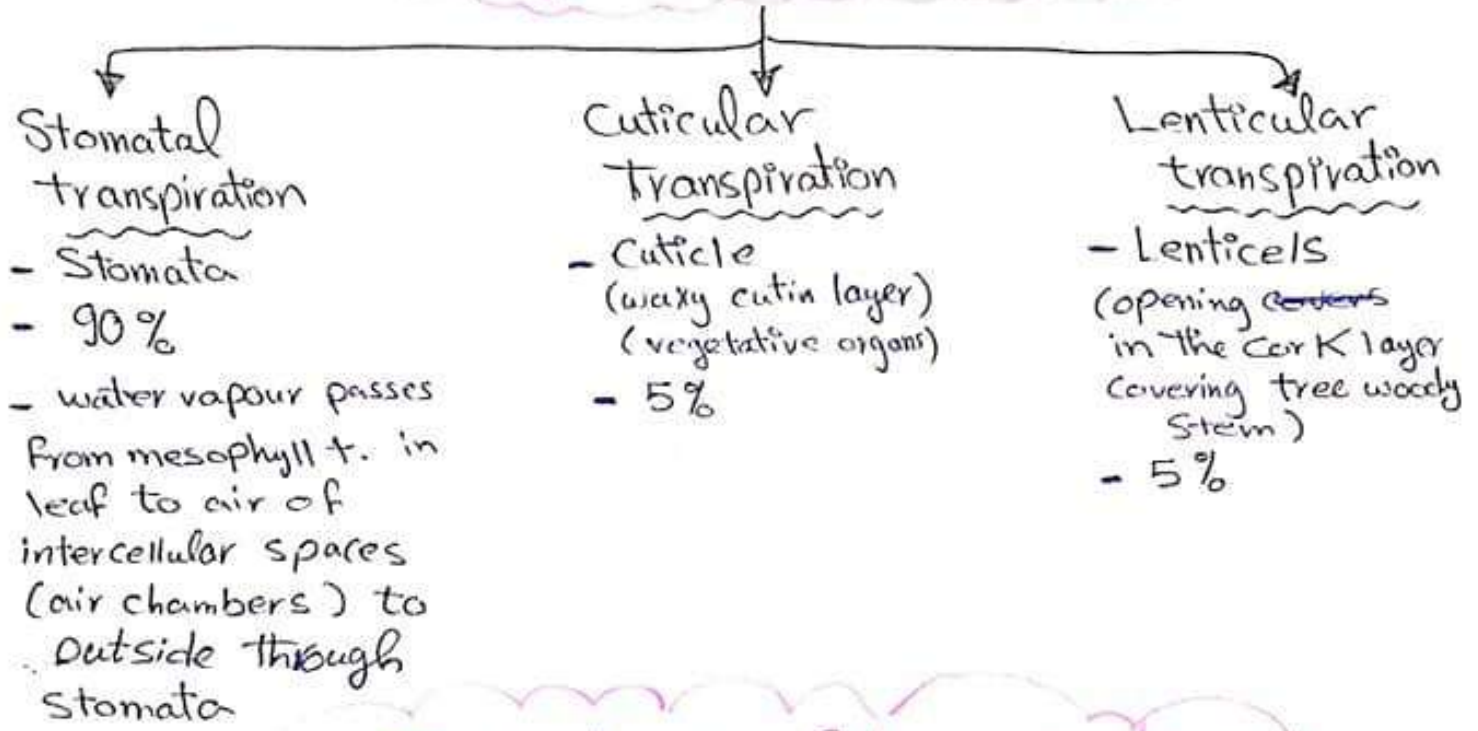 Stomatal
transpiration
- Stomata
- 90%
- water vapour passes
from mesophyll t. in
leaf to air of
intercellular spaces
(air chambers) to
outside through
stomata
Cuticular
Transpiration
- Cuticle
(waxy cutin layer)
(vegetative organs)
- 5%
Lenticular
transpiration
- Lenticels
(opening
in the cork layer
covering tree woody
stem)
- 5%